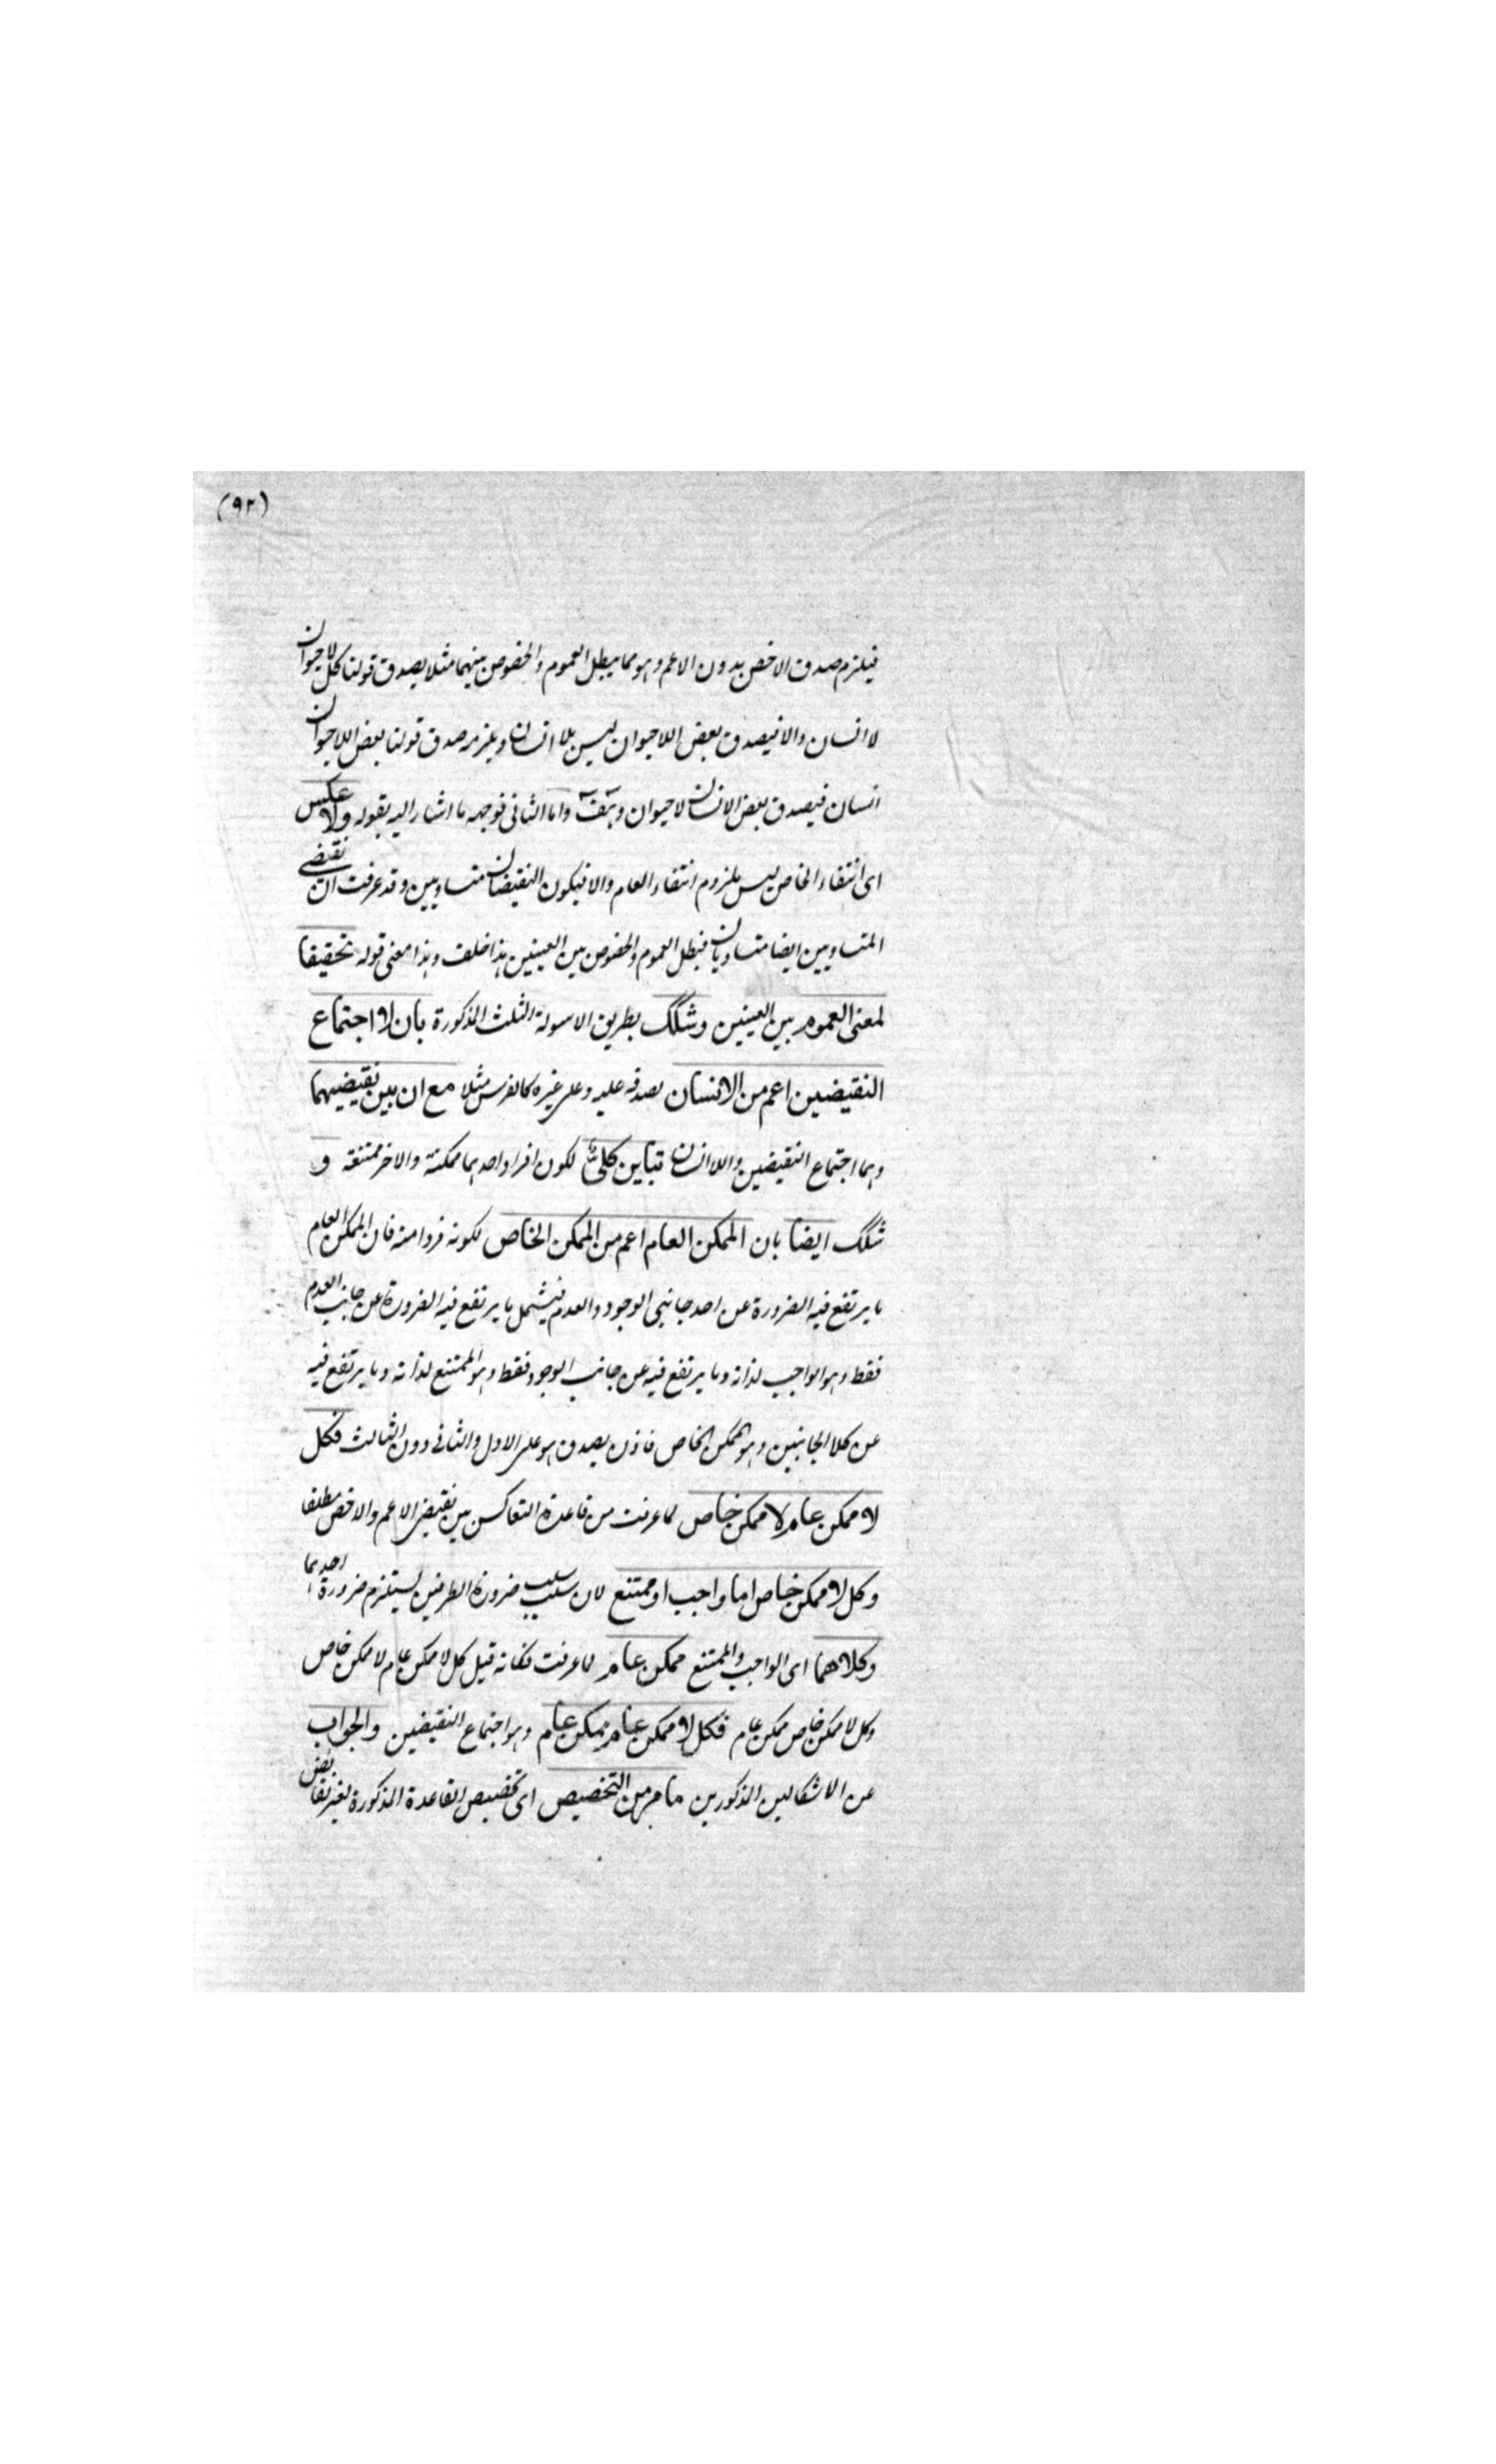 (٩٢)
فيلزم صدق الاخص بدون الاعم وهو مما يبطل العموم والخصوص بينهما مثلا يصدق قولنا كل لاحيوان
لا انسان والا فيصدق بعض اللاحيوان ليس بلا انسان ويلزمه صدق قولنا بعض اللاحيوان
انسان فيصدق بعض الانسان لاحيوان وهف واما الثاني فوجهه ما اشار اليه بقوله ولا عكس
اى انتفاء الخاص ليس ملزوم انتفاء العام والا فيكون النقيضان متساويين وقد عرفت ان نقيضى
المتساويين ايضا متساويان فبطل العموم والخصوص بين العينين هذا خلف وهذا معنى قوله تحقيقا
لمعنى العموم بين العينين وشكك بطريق الاسولة الثلث المذكورة بان لا اجتماع
النقيضين اعم من الانسان لصدقه عليه وعلى غيره كالفرس مثلا مع ان بين نقيضيهما
وهما اجتماع النقيضين واللاانسان تباين كلى لكون افراد احدهما ممكنة والاخر ممتنعة و
شكك ايضا بان الممكن العام اعم من الممكن الخاص لكونه فردا منه فان الممكن العام
ما يرتفع فيه الضرورة عن احد جانبى الوجود والعدم فيشمل ما يرتفع فيه الضرورة عن جانب العدم
فقط وهو الواجب لذاته وما يرتفع فيه عن جانب الوجود فقط وهو الممتنع لذاته وما يرتفع فيه
عن كلا الجانبين وهو الممكن الخاص فاذن يصدق هو على الاول والثانى دون الثالث فكل
لا ممكن عام لا ممكن خاص لما عرفت من قاعدة التعاكس بين نقيضى الاعم والاخص مطلقا
وكل لا ممكن خاص اما واجب او ممتنع لان سلب ضرورة الطرفين يستلزم ضرورة احدهما
وكلاهما اى الواجب والممتنع ممكن عام لما عرفت فكانه قيل كل لا ممكن عام لا ممكن خاص
وكل لا ممكن خاص ممكن عام فكل لا ممكن عام ممكن عام وهو اجتماع النقيضين والجواب
عن الاشكالين المذكورين ما مر من التخصيص اى تخصيص القاعدة المذكورة لغير نقائض